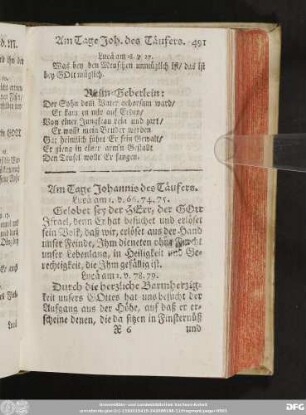 Am Tage Joh. des Täufers. 491
Lucä am
Was bey den Menschen unmüglich ist/ das ist
bey GOtt müglich.
Reim-Gebetlein:
Der Sohn dem Vater gehorsam ward/
Er kam zu mir auf Erden/
Von einer Jungfrau rein und zart/
Er wollt mein Bruder werden
Gar heimlich führt Er sein Gewalt/
Er gieng in einer arm'n Gestalt
Den Teufel wollt Er fangen.
Am Tage Johannis des Täufers.
Lucä am 1. v. 68. 74. 75.
Gelobet sey der HErr, der GOtt
Israel, denn Er hat besuchet und erlöset
sein Volk, daß wir, erlöset aus der Hand
unser Feinde, Ihm dieneten ohne Furcht
unser Lebenlang, in Heiligkeit und Ge-
rechtigkeit, die Ihm gefällig ist.
Lucä am 1. v. 78. 79.
Durch die herzliche Barmherzig-
keit unsers GOttes hat uns besucht der
Aufgang aus der Höhe, auf daß er er-
scheine denen, die da sitzen in Finsternüß
X 6 und